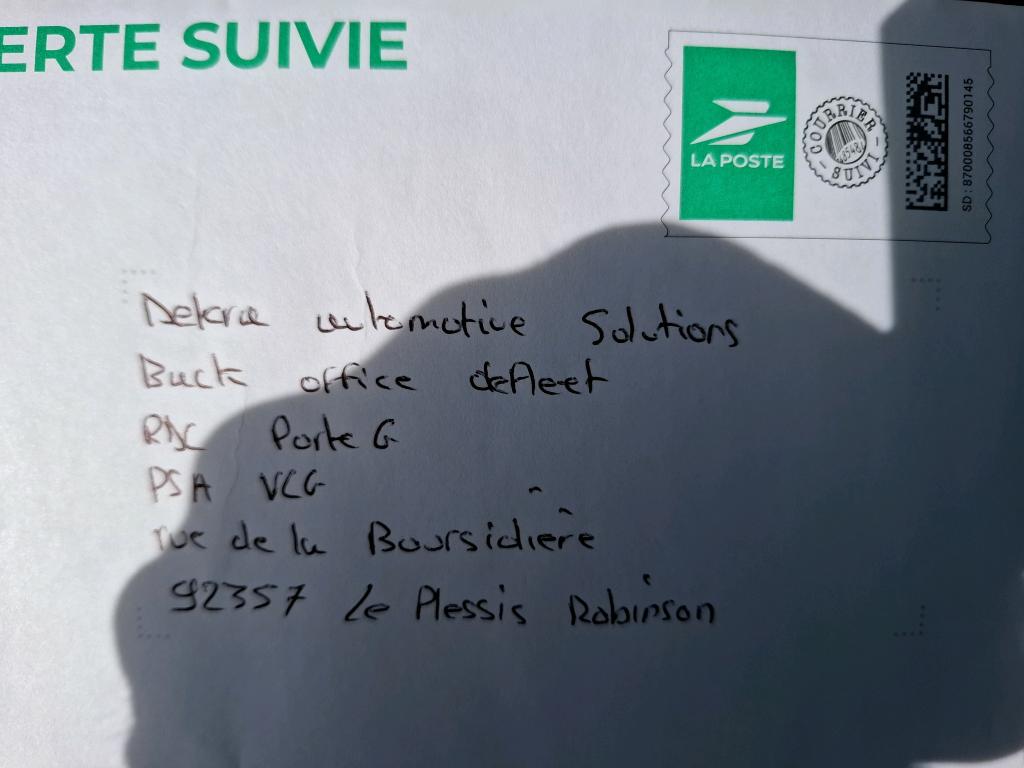 ERTE SUIVIE
LA POSTE
COURRIER SUIVI
SD : 870008566790145
Dekra automotive Solutions
Back office defleet
RDC Porte G
PSA VCG
rue de la Boursidière
92357 Le Plessis Robinson